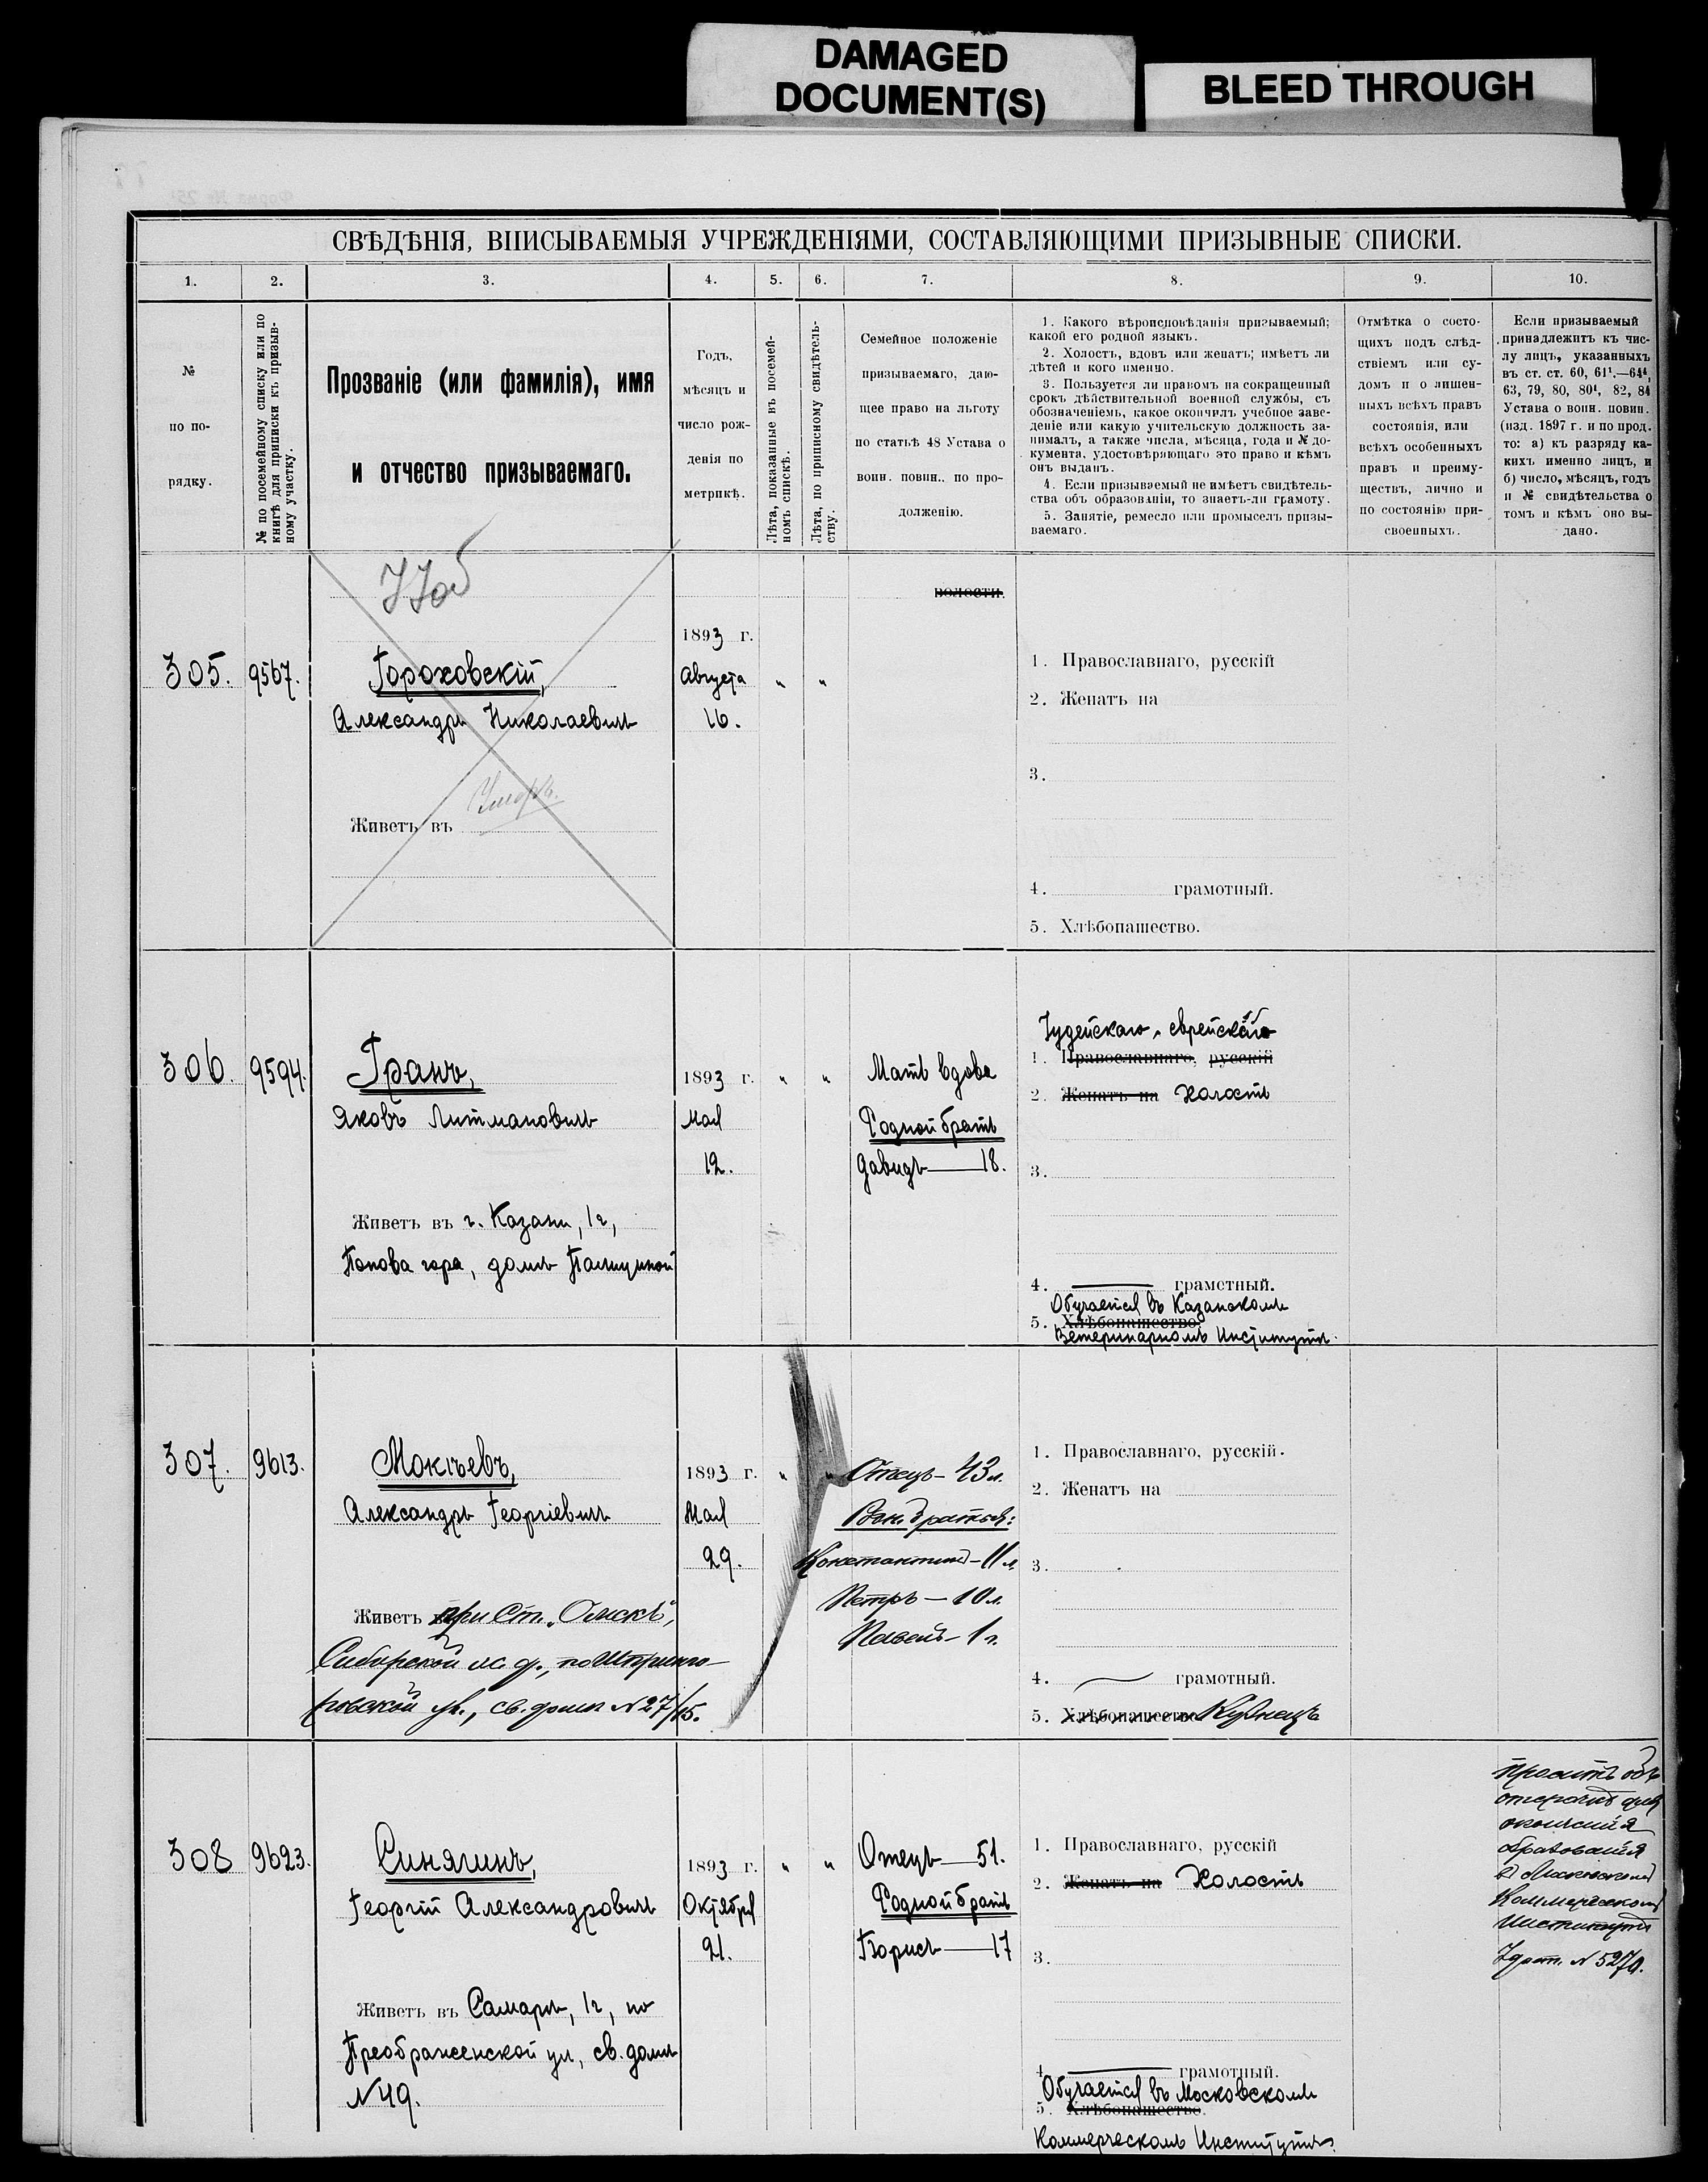 DAMAGED
DOCUMENT(S)
BLEED THROUGH
СВѢДѢНІЯ, ВПИСЫВАЕМЫЯ УЧРЕЖДЕНІЯМИ, СОСТАВЛЯЮЩИМИ ПРИЗЫВНЫЕ СПИСКИ.
1. 2. 3. 4. 5. 6. 7. 8. 9. 10.
№
по по-
рядку.
№ по посемейному списку или по
книгѣ для приписки къ призыв-
ному участку.
Прозваніе (или фамилія), имя
и отчество призываемаго.
Годъ,
мѣсяцъ и
число рож-
денія по
метрикѣ.
Лѣта, показанные въ посемей-
номъ спискѣ.
Лѣта, по приписному свидѣтель-
ству.
Семейное положеніе
призываемаго, даю-
щее право на льготу
по статьѣ 48 Устава о
воин. повин., по про-
долженію.
1. Какого вѣроисповѣданія призываемый;
какой его родной языкъ.
2. Холостъ, вдовъ или женатъ; имѣетъ ли
дѣтей и кого именно.
3. Пользуется ли правомъ на сокращенный
срокъ дѣйствительной военной службы, съ
обозначеніемъ, какое окончилъ учебное заве-
деніе или какую учительскую должность за-
нималъ, а также числа, мѣсяца, года и № до-
кумента, удостовѣряющаго это право и кѣмъ
онъ выданъ.
4. Если призываемый не имѣетъ свидѣтель-
ства объ образованіи, то знаетъ-ли грамоту.
5. Занятіе, ремесло или промыселъ призы-
ваемаго.
Отмѣтка о состо-
ящихъ подъ слѣд-
ствіемъ или су-
домъ и о лишен-
ныхъ всѣхъ правъ
состоянія, или
всѣхъ особенныхъ
правъ и преиму-
ществъ, лично и
по состоянію при-
своенныхъ.
Если призываемый
принадлежитъ къ чис-
лу лицъ, указанныхъ
въ ст. ст. 60, 61¹.—64⁴,
63, 79, 80, 80¹, 82, 84
Устава о воин. повин.
(изд. 1897 г. и по прод.
то: а) къ разряду ка-
кихъ именно лицъ, и
б) число, мѣсяцъ, годъ
и № свидѣтельства о
томъ и кѣмъ оно вы-
дано.
волости.
305. 9567.
Гороховскій,
Александръ Николаевичъ
Умеръ.
Живетъ въ
1893 г.
Августа
16.
" "
1. Православнаго, русскій
2. Женатъ на
3.
4. грамотный.
5. Хлѣбопашество.
306. 9594.
Гранъ,
Яковъ Литмановичъ
Живетъ въ г. Казани, 1ч,
Попова гора, домъ
1893 г.
Мая
12.
" "
Мать вдова
Родной братъ
Давидъ — 18.
Іудейскаго, еврейскій
1. Православнаго, русскій
2. Женатъ на Холостъ
3.
4. грамотный.
Обучается въ Казанскомъ
5. Хлѣбопашество.
Ветеринарномъ Институтѣ.
307. 9613.
Мокѣевъ,
Александръ Георгіевичъ
Живетъ при Ст. "Омскъ",
Сибирской ж. д.,
ул., св. домъ №27/15.
1893 г.
Мая
29.
" "
Отецъ — 43 л.
братья:
Константинъ — 11 л.
Петръ — 10 л.
1 г.
1. Православнаго, русскій.
2. Женатъ на
3.
4. грамотный.
5. Хлѣбопашество Кузнецъ
308 9623.
Синягинъ,
Георгій Александровичъ
Живетъ въ Самарѣ, 1ч, по
Преображенской ул, св. домъ
№49.
1893 г.
Октября
21.
" "
Отецъ — 51.
Родной братъ
Борисъ — 17
1. Православнаго, русскій
2. Женатъ на Холостъ
3.
4. грамотный.
Обучается въ Московскомъ
5. Хлѣбопашество.
Коммерческомъ Институтѣ.
Проситъ объ
отсрочкѣ для
окончанія
образованія
въ Московскомъ
Коммерческомъ
Институтѣ
№ 5279.